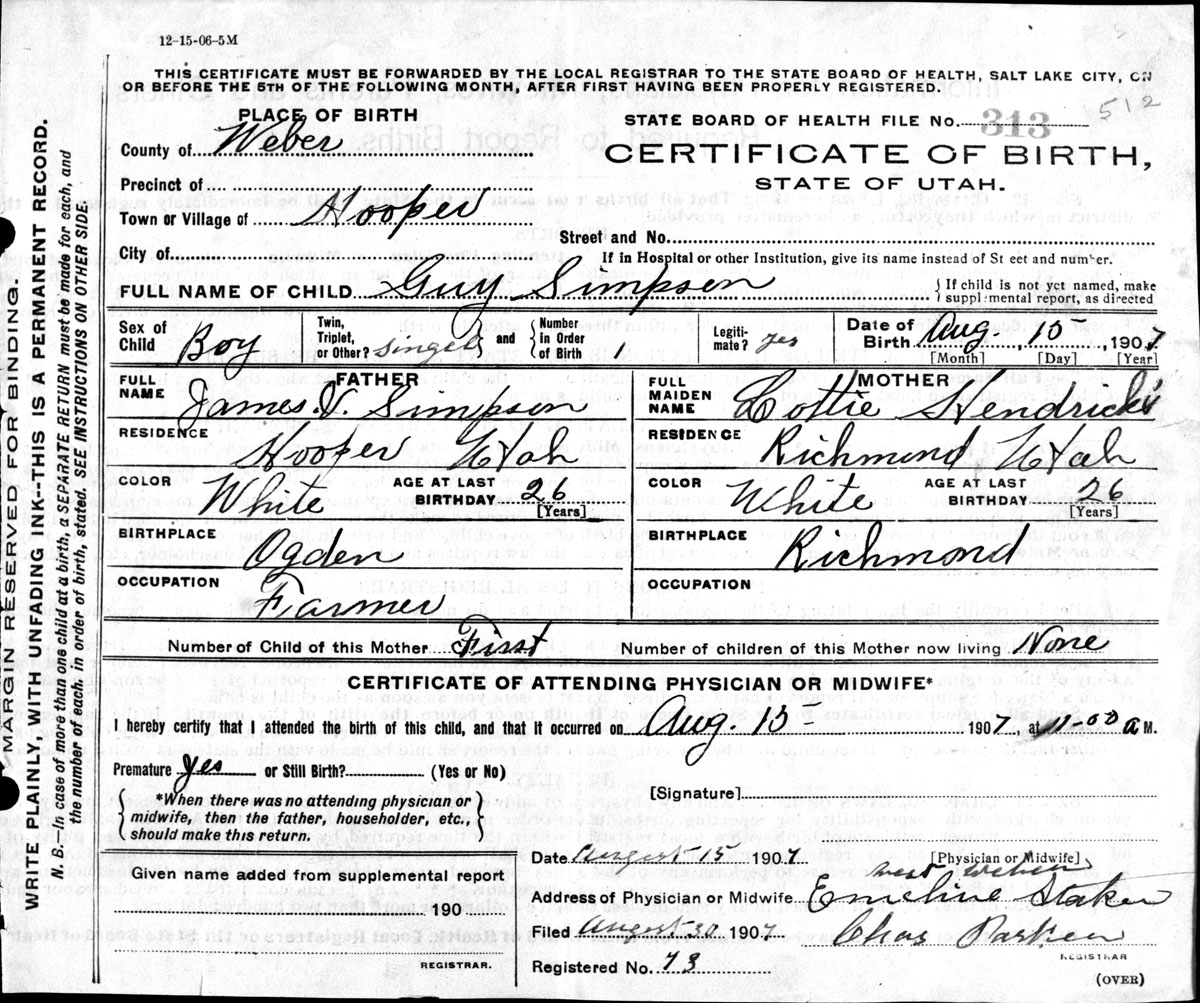 12-15-06-5M
THIS CERTIFICATE MUST BE FORWARDED BY THE LOCAL REGISTRAR TO THE STATE BOARD OF HEALTH, SALT LAKE CITY, ON
OR BEFORE THE 5TH OF THE FOLLOWING MONTH, AFTER FIRST HAVING BEEN PROPERLY REGISTERED.
512
PLACE OF BIRTH
STATE BOARD OF HEALTH FILE No. 313
County of Weber
CERTIFICATE OF BIRTH,
STATE OF UTAH.
Precinct of
Town or Village of Hooper
Street and No.
City of
If in Hospital or other Institution, give its name instead of St eet and number.
FULL NAME OF CHILD Guy Simpson
{If child is not yet named, make
supplemental report, as directed
Sex of Child Boy
Twin, Triplet, or Other? Singel and
{Number In Order of Birth 1
Legiti- mate? yes
Date of Birth Aug. 15, 1907
[Month] [Day] [Year]
FATHER
FULL NAME James V. Simpson
MOTHER
FULL MAIDEN NAME Lottie Hendricks
RESIDENCE Hooper Utah
RESIDENCE Richmond Utah
COLOR White AGE AT LAST BIRTHDAY 26 [Years]
COLOR White AGE AT LAST BIRTHDAY 26 [Years]
BIRTHPLACE Ogden
BIRTHPLACE Richmond
OCCUPATION Farmer
OCCUPATION
Number of Child of this Mother First
Number of children of this Mother now living None
CERTIFICATE OF ATTENDING PHYSICIAN OR MIDWIFE*
I hereby certify that I attended the birth of this child, and that it occurred on Aug. 15 1907, at 11-00 a M.
Premature yes or Still Birth? (Yes or No)
[Signature]
{*When there was no attending physician or
midwife, then the father, householder, etc.,
should make this return.}
Date August 15 1907
[Physician or Midwife]
Given name added from supplemental report
West Weber
Address of Physician or Midwife Emeline Staker
190
Filed August 30 1907 Chas Parker
REGISTRAR
REGISTRAR.
Registered No. 73
(OVER)
MARGIN RESERVED FOR BINDING.
WRITE PLAINLY, WITH UNFADING INK--THIS IS A PERMANENT RECORD.
N. B. In case of more than one child at a birth, a SEPARATE RETURN must be made for each, and
the number of each, in order of birth, stated. SEE INSTRUCTIONS ON OTHER SIDE